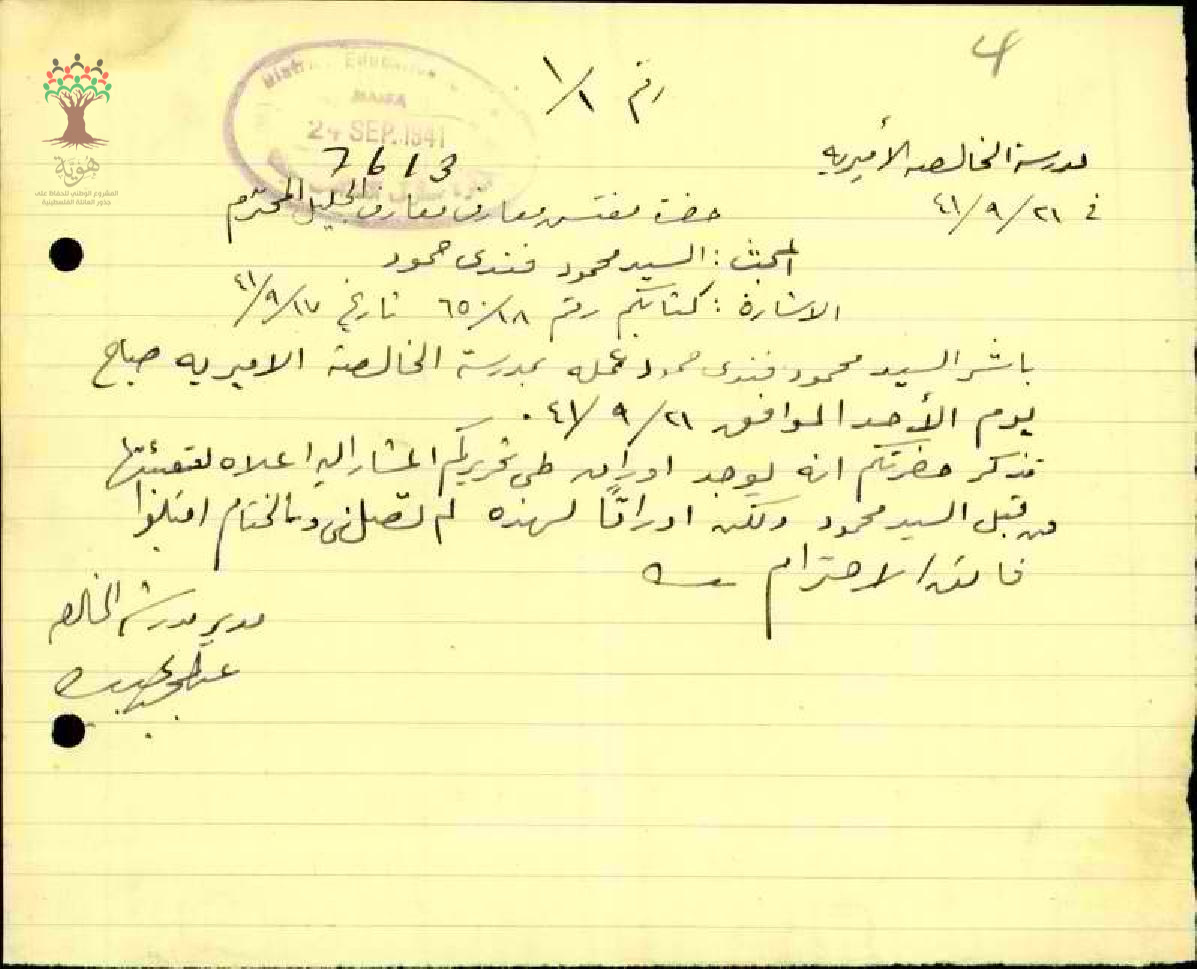 4
رقم ١/١
District Education
HAIFA
24 SEP. 1941
7613
مدرسة الخالصة الأميريه
في ٢١/٩/٤١
حضرة مفتش معارف معارف الجليل المحترم
المبحث : السيد محمود فندى حمود
الاشارة : كتابكم رقم ٦٥/١٨ تاريخ ٤١/٩/١٧
باشر السيد محمود فندى حمود عمله بمدرسة الخالصة الاميريه صباح
يوم الأحد الموافق ٢١/٩/٤١.
تذكر حضرتكم انه يوجد اوراق طى تحريركم المشار اليه اعلاه لتعبئتها
من قبل السيد محمود ولكن اوراقاً كهذه لم تصلنى وبالختام اقبلوا
فائق الاحترام
مدير مدرسة الخالصة
هُوِيَّة
المشروع الوطني للحفاظ على
جذور العائلة الفلسطينية